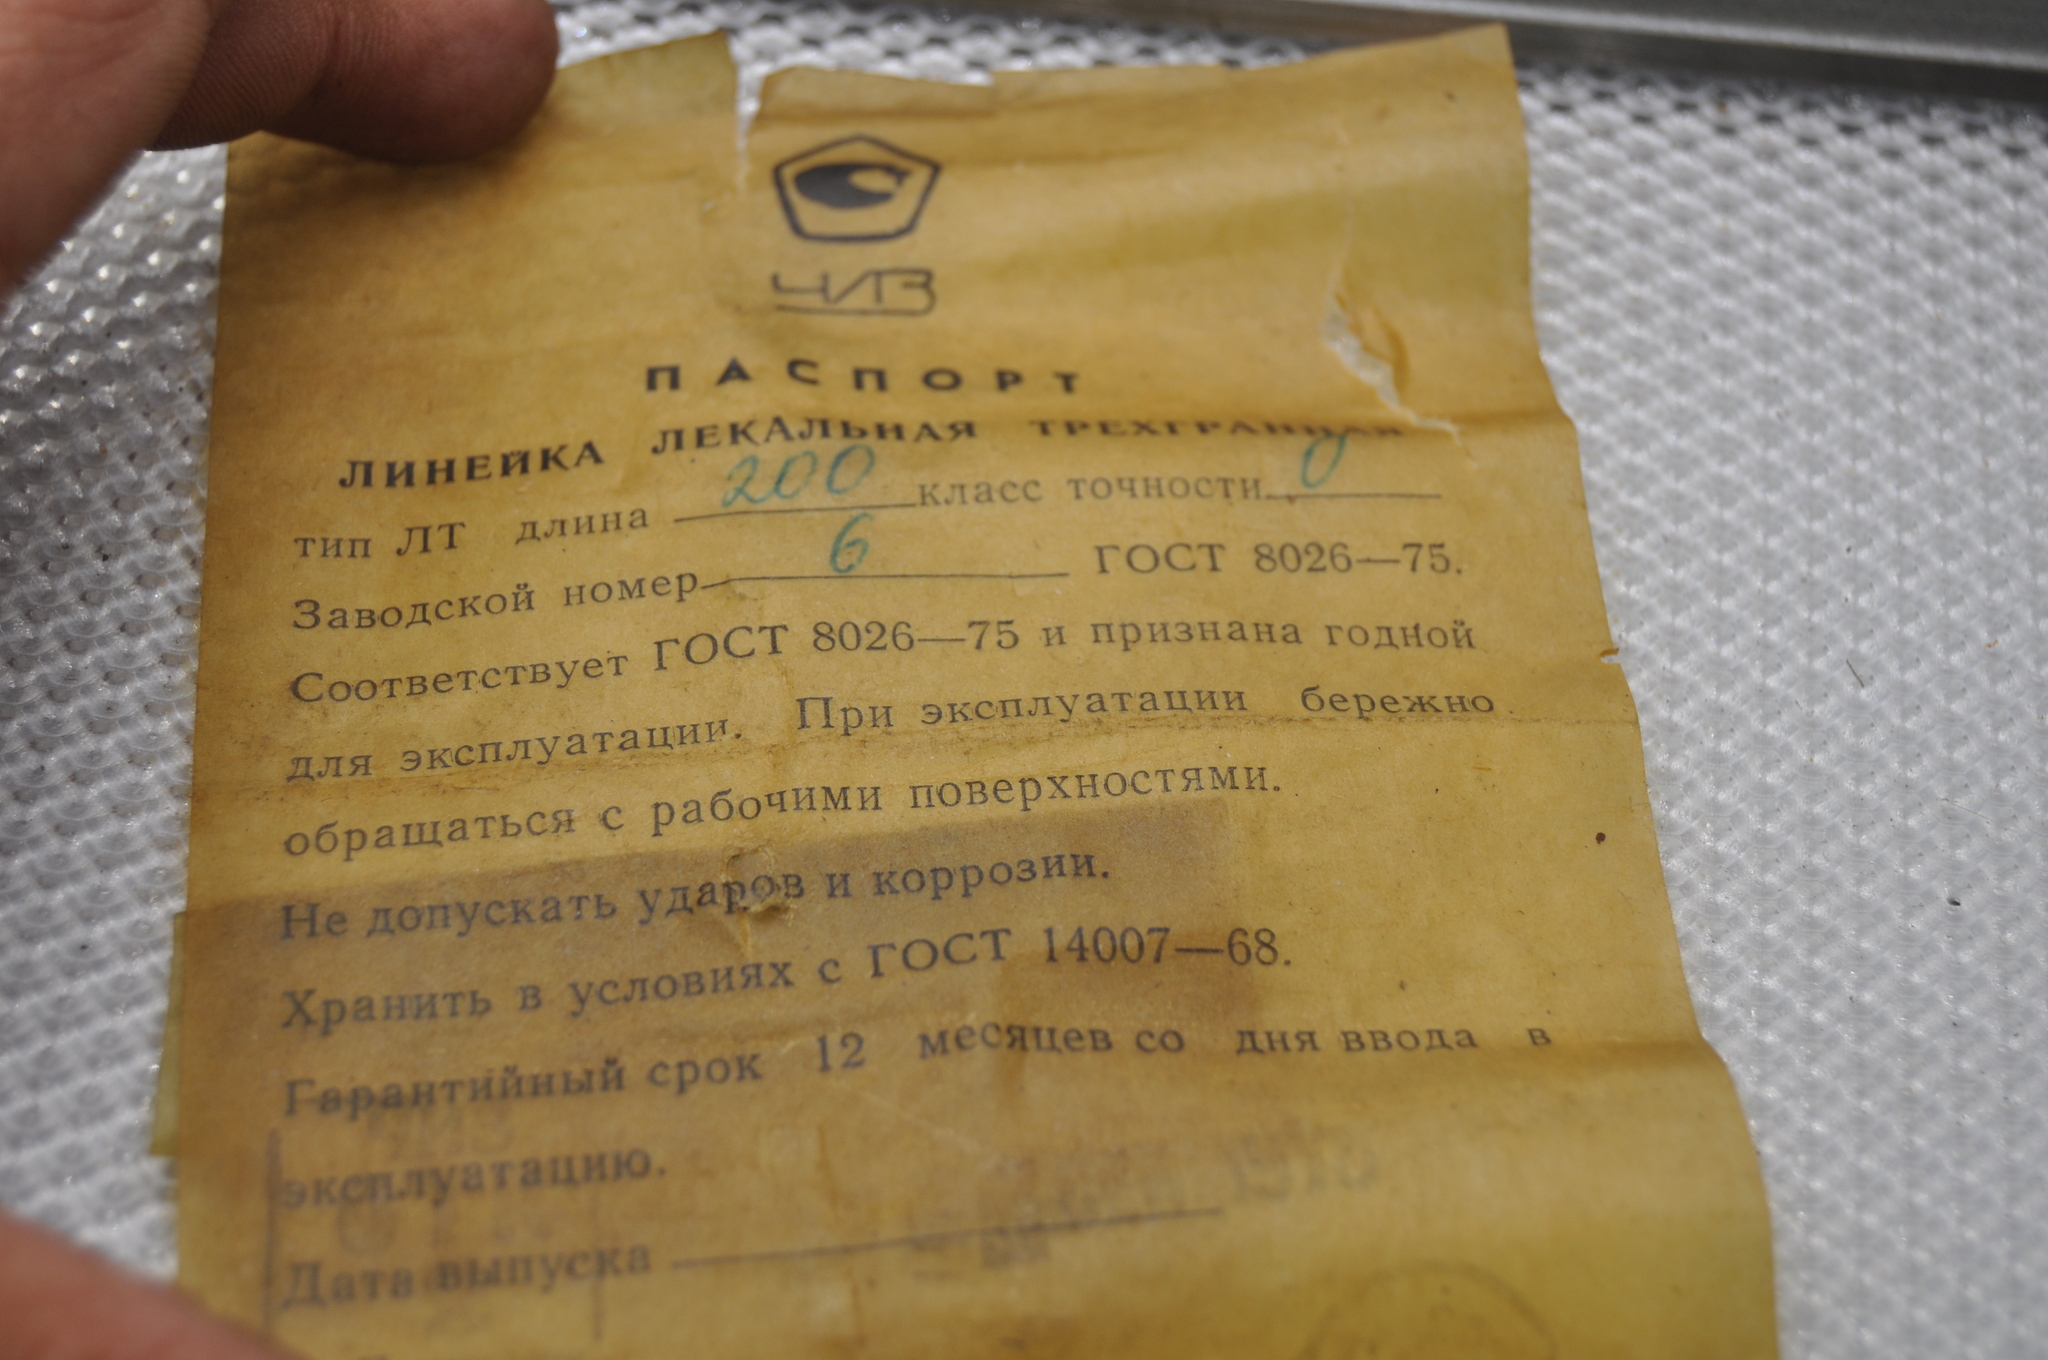 ЧИЗ
ПАСПОРТ
ЛИНЕЙКА ЛЕКАЛЬНАЯ ТРЕХГРАННАЯ
тип ЛТ длина 200 класс точности 0
Заводской номер 6 ГОСТ 8026—75.
Соответствует ГОСТ 8026—75 и признана годной
для эксплуатации. При эксплуатации бережно
обращаться с рабочими поверхностями.
Не допускать ударов и коррозии.
Хранить в условиях с ГОСТ 14007—68.
Гарантийный срок 12 месяцев со дня ввода в
эксплуатацию.
Дата выпуска